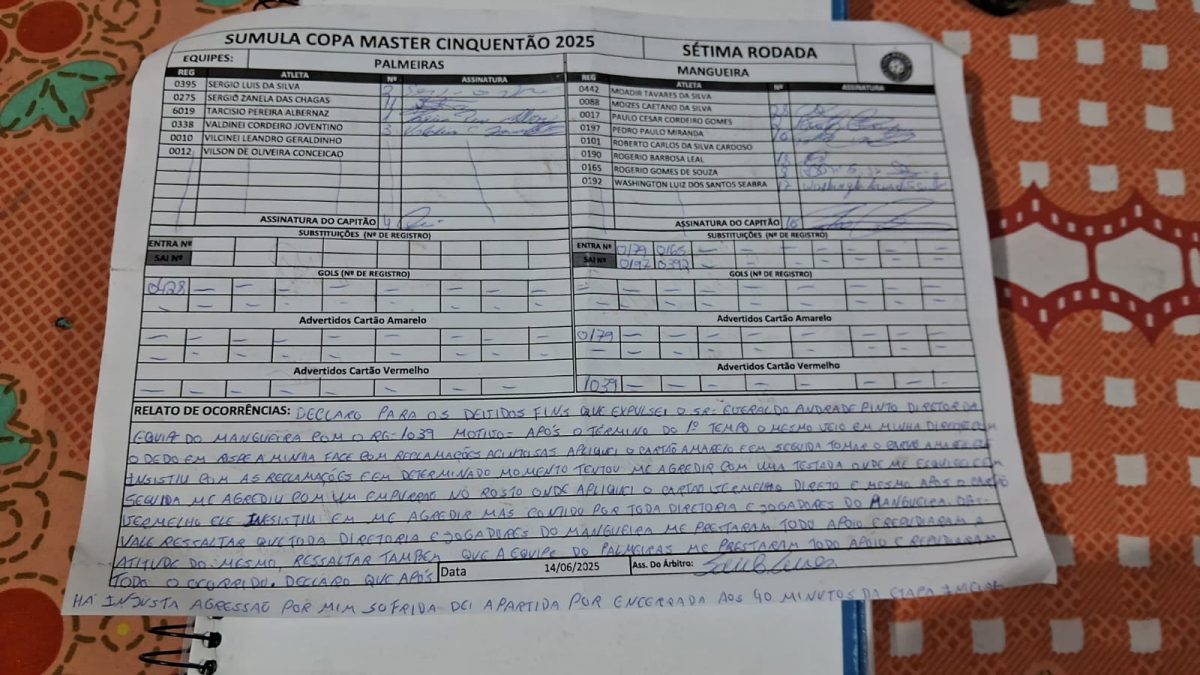 SUMULA COPA MASTER CINQUENTÃO 2025 SÉTIMA RODADA
EQUIPES: PALMEIRAS MANGUEIRA
REG ATLETA Nº ASSINATURA REG ATLETA Nº ASSINATURA
0395 SERGIO LUIS DA SILVA
0275 SERGIO ZANELA DAS CHAGAS
6019 TARCISIO PEREIRA ALBERNAZ
0338 VALDINEI CORDEIRO JOVENTINO 3
0010 VILCINEI LEANDRO GERALDINHO
0012 VILSON DE OLIVEIRA CONCEICAO
0442 MOADIR TAVARES DA SILVA
0088 MOIZES CAETANO DA SILVA
0017 PAULO CESAR CORDEIRO GOMES
0197 PEDRO PAULO MIRANDA
0101 ROBERTO CARLOS DA SILVA CARDOSO
0190 ROGERIO BARBOSA LEAL
0165 ROGERIO GOMES DE SOUZA
0192 WASHINGTON LUIZ DOS SANTOS SEABRA 17
ASSINATURA DO CAPITÃO 4 ASSINATURA DO CAPITÃO 10
SUBSTITUIÇÕES (Nº DE REGISTRO) SUBSTITUIÇÕES (Nº DE REGISTRO)
ENTRA Nº ENTRA Nº 0179 0165
SAI Nº SAI Nº 0192 0392
GOLS (Nº DE REGISTRO) GOLS (Nº DE REGISTRO)
0428
Advertidos Cartão Amarelo Advertidos Cartão Amarelo
0179
Advertidos Cartão Vermelho Advertidos Cartão Vermelho
1039
RELATO DE OCORRÊNCIAS: DECLARO PARA OS DEITIDOS FINS QUE EXPULSEI O SR= EVERALDO ANDRADE PINTO DIRETOR DA
EQUIPA DO MANGUEIRA COM O RG=1039 MOTIVO= APÓS O TÉRMINO DO 1º TEMPO O MESMO VEIO EM MINHA DIREÇÃO COM
O DEDO EM A MINHA FACE COM RECLAMAÇÕES ACINTOSAS APLIQUEI O CARTÃO AMARELO E EM SEGUIDA TOMAR O CARTÃO AMARELO ELE
INSISTIU COM AS RECLAMAÇÕES E EM DETERMINADO MOMENTO TENTOU ME AGREDIR COM UMA TESTADA ONDE ME ESQUIVEI EM
SEGUIDA ME AGREDIU COM UM EMPURRÃO NO ROSTO ONDE APLIQUEI O CARTÃO VERMELHO DIRETO E MESMO APÓS O CARTÃO
VERMELHO ELE INSISTIU EM ME AGREDIR MAS CONTIDO POR TODA DIRETORIA E JOGADORES DO MANGUEIRA. OBS=
VALE RESSALTAR QUE TODA DIRETORIA E JOGADORES DO MANGUEIRA ME PRESTARAM TODO APOIO E REPUDIARAM A
ATITUDE DO MESMO, RESSALTAR TAMBÉM QUE A EQUIPE DO PALMEIRAS ME PRESTARAM TODO APOIO E REPUDIARAM
TODO O OCORRIDO. DECLARO QUE APÓS Data 14/06/2025 Ass. Do Árbitro:
HÁ INJUSTA AGRESSÃO POR MIM SOFRIDA DEI A PARTIDA POR ENCERRADA AOS 40 MINUTOS DA ETAPA INICIAL